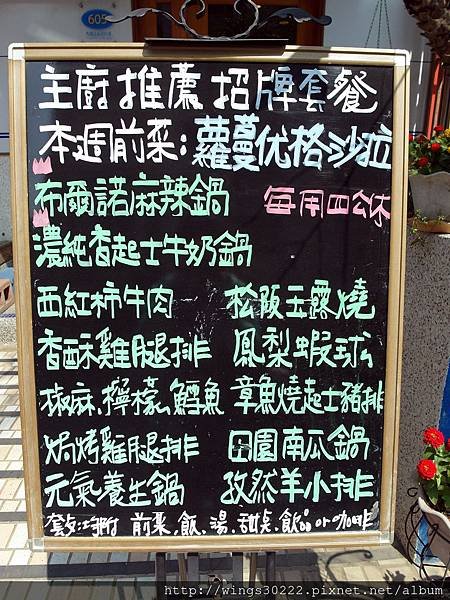 605
主廚推薦招牌套餐
本週前菜:蘿蔓优格沙拉
布爾諾麻辣鍋 每周四公休
濃純香起士牛奶鍋
西紅柿牛肉 松阪玉露燒
香酥雞腿排 鳳梨蝦球
椒麻.檸檬鱈魚 章魚燒起士豬排
焗烤雞腿排 田園南瓜鍋
元氣養生鍋 孜然羊小排
套餐均附 前菜.飲.湯.甜桌.飲品or咖啡
http://wings30222.pixnet.net/album